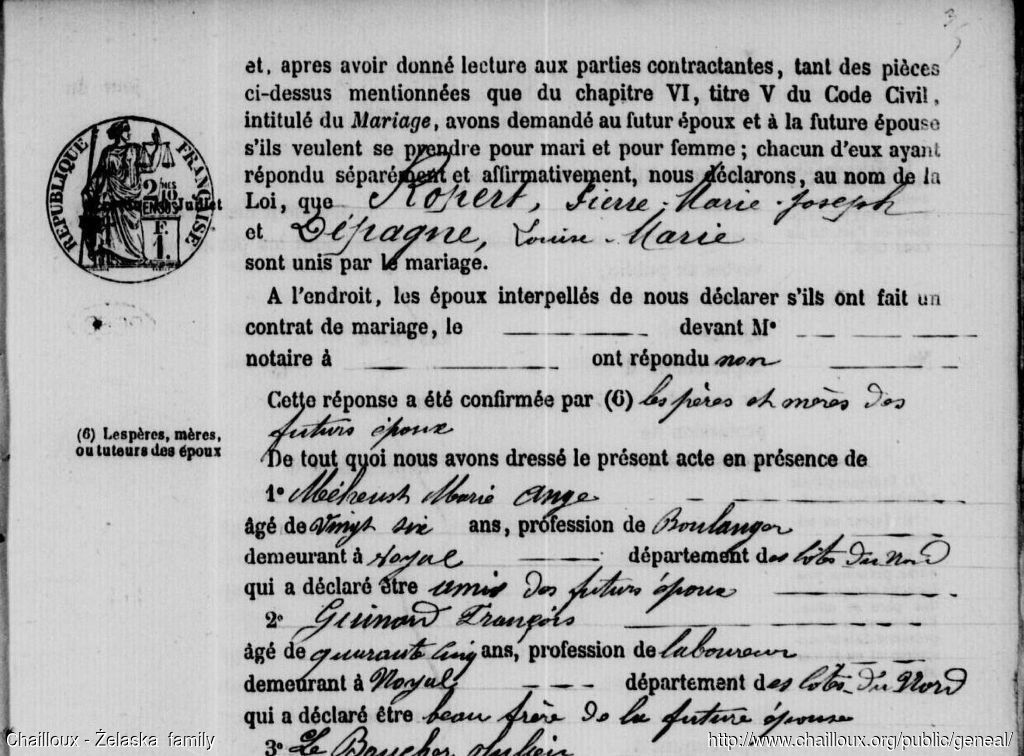 3
et, apres avoir donné lecture aux parties contractantes, tant des pièces
ci-dessus mentionnées que du chapitre VI, titre V du Code Civil,
intitulé du Mariage, avons demandé au futur époux et à la future épouse
s'ils veulent se prendre pour mari et pour femme ; chacun d'eux ayant
répondu séparément et affirmativement, nous déclarons, au nom de la
Loi, que Ropert, Pierre-Marie-Joseph
et Dépagne, Louise-Marie
sont unis par le mariage.
RÉPUBLIQUE FRANÇAISE
A l'endroit, les époux interpellés de nous déclarer s'ils ont fait un
contrat de mariage, le devant Me
notaire à ont répondu non
Cette réponse a été confirmée par (6) les pères et mères des
futurs époux
(6) Les pères, mères,
ou tuteurs des époux
De tout quoi nous avons dressé le présent acte en présence de
1° Méheust Marie Ange
âgé de Vingt six ans, profession de Boulanger
demeurant à Noyal département des Côtes du Nord
qui a déclaré être amis des futurs époux
2° Guinard François
âgé de quarante cinq ans, profession de laboureur
demeurant à Noyal département des Côtes-du-Nord
qui a déclaré être beau frère de la future épouse
3° Le Boucher Julien
Chailloux - Żelaska family
http://www.chailloux.org/public/geneal/